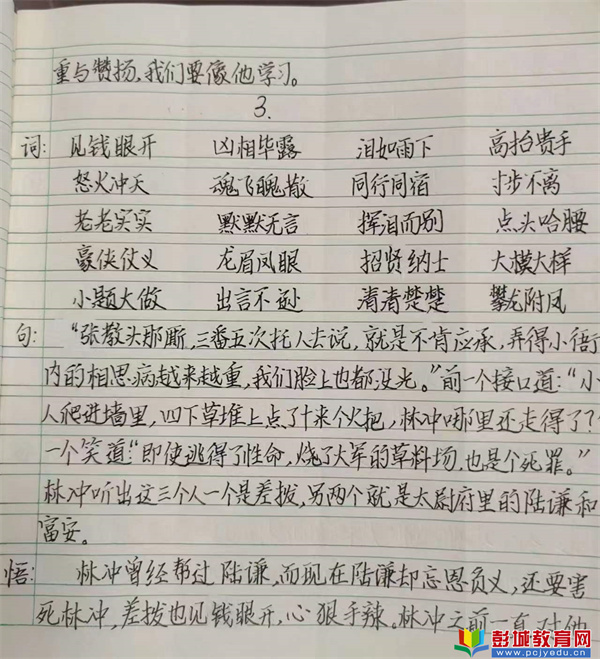 重与赞扬,我们要像他学习。
3.
词: 见钱眼开 凶相毕露 泪如雨下 高抬贵手
怒火冲天 魂飞魄散 同行同宿 寸步不离
老老实实 默默无言 挥泪而别 点头哈腰
豪侠仗义 龙眉凤眼 招贤纳士 大模大样
小题大做 出言不逊 清清楚楚 攀龙附凤
句: “张教头那厮,三番五次托人去说,就是不肯应承,弄得小衙
内的相思病越来越重,我们脸上也都没光。”前一个接口道:“小
人爬进墙里,四下草堆上点了十来个火把,林冲哪里还走得了?
一个笑道:“即使逃得了性命,烧了大军的草料场,也是个死罪。”
林冲听出这三个人一个是差拨,另两个就是太尉府里的陆谦和
富安。
悟: 林冲曾经帮过陆谦,而现在陆谦却忘恩负义,还要害
死林冲,差拨也见钱眼开,心狠手辣。林冲之前一直对他
彭城教育网
www.pcjyedu.cn